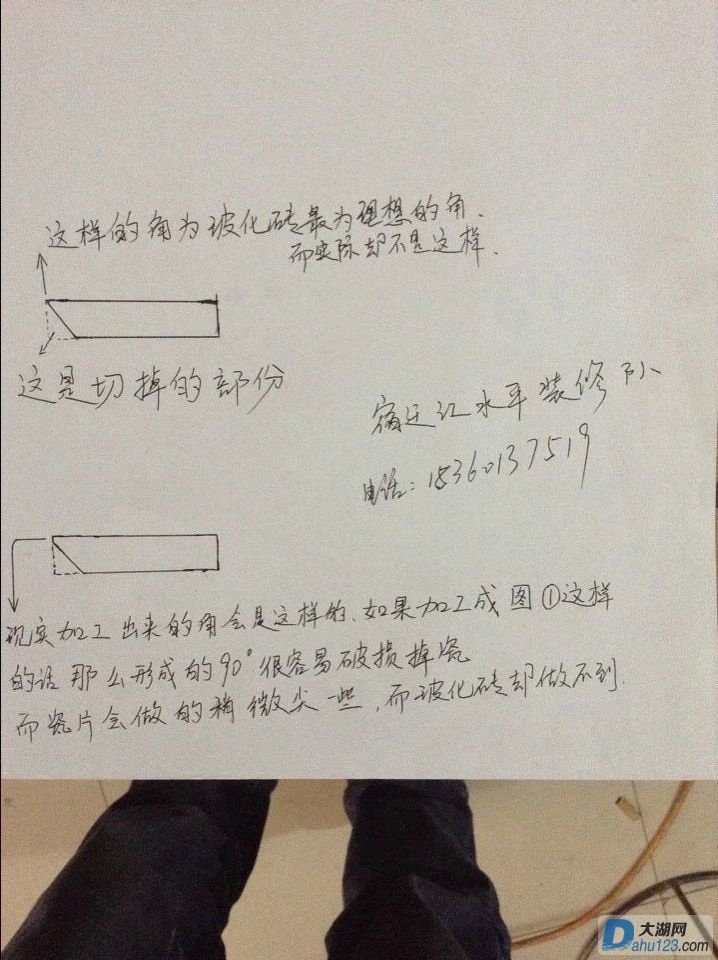 这样的角为玻化砖最为理想的角、
而实际却不是这样.
这是切掉的部份
宿迁江水平装修队
电话:18360137519
现实加工出来的角会是这样的、如果加工成图①这样
的话那么形成的90°很容易破损掉瓷
而瓷片会做的稍微尖一些,而玻化砖却做不到.
大湖网
Dahu123.com